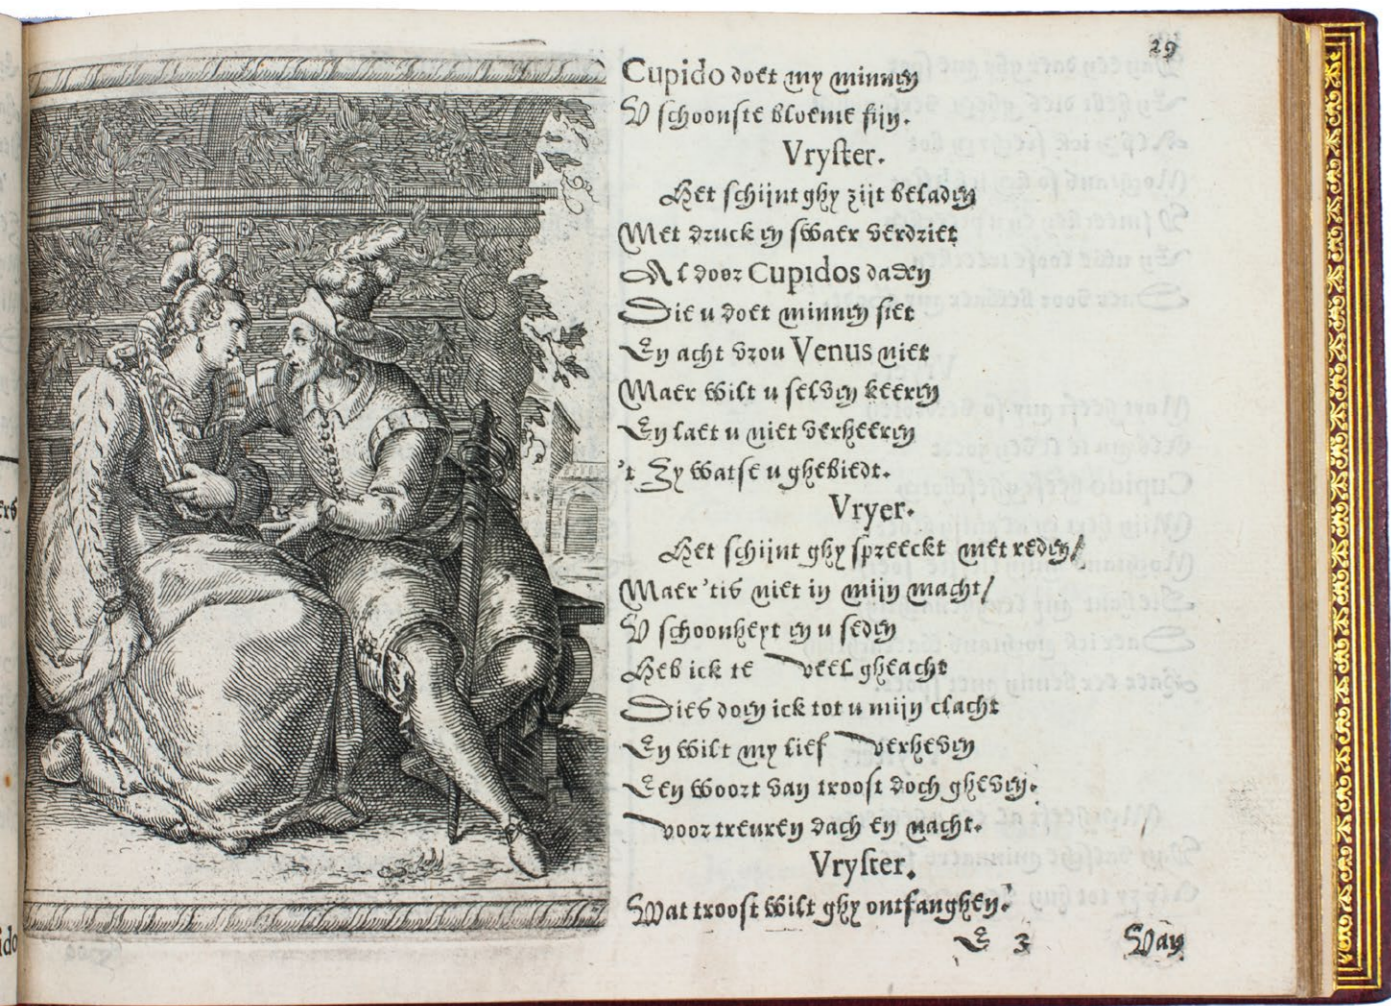 29
Cupido doet my minnen
V schoonste bloeme fijn.
Vryster.
Het schijnt ghy zijt beladen
Met druck en swaer verdriet
Al door Cupidos daden
Die u doet minnen siet
En acht vrou Venus niet
Maer wilt u selven keeren
En laet u niet verheeren
't Zy watse u ghebiedt.
Vryer.
Het schijnt ghy spreeckt met reden/
Maer 'tis niet in mijn macht/
V schoonheyt en u seden
Heb ick te veel gheacht
Dies doen ick tot u mijn clacht
En wilt my lief verheven
Een woort van troost doch gheven.
voor treuren dach en nacht.
Vryster.
Wat troost wilt ghy ontfanghen?
E 3 Van
ers
ido